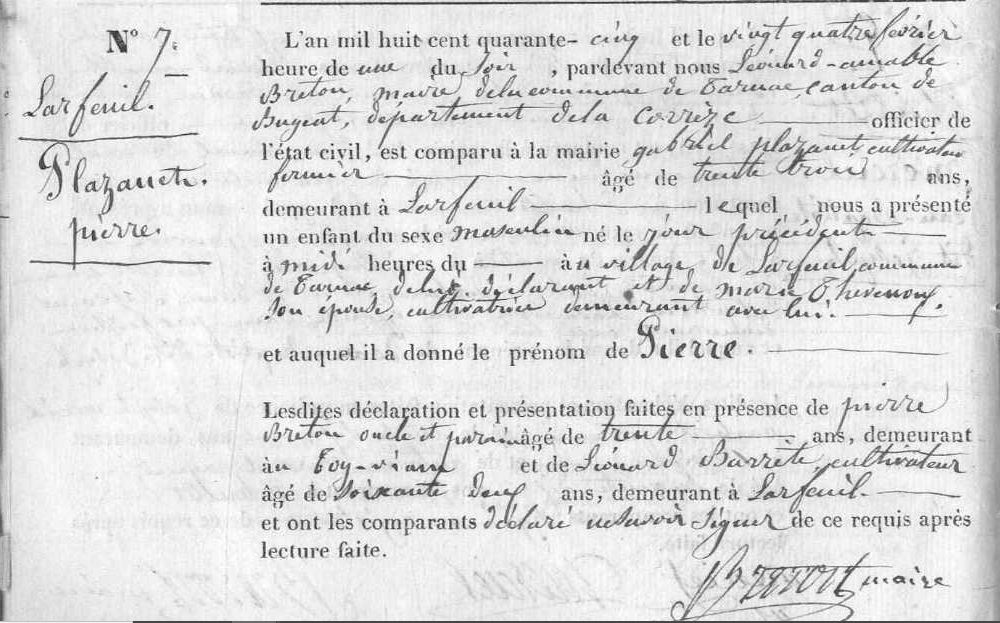 N° 7.
Larfeuil.
Plazanet.
pierre.
L'an mil huit cent quarante- cinq et le vingt quatre février
heure de une du soir , pardevant nous Léonard-amable
Breton, maire, dela commune de Tarnac, canton de
Bugeat, département dela Corrèze officier de
l'état civil, est comparu à la mairie gabriel plazanet cultivateur
fermier âgé de trente trois ans,
demeurant à Larfeuil lequel nous a présenté
un enfant du sexe masculin né le jour précédent
à midi heures du au village de Larfeuil, commune
de Tarnac, delui déclarant et de marie
son épouse, cultivatrice demeurant avec lui.
et auquel il a donné le prénom de Pierre.
Lesdites déclaration et présentation faites en présence de pierre
Breton oncle et parain âgé de trente ans, demeurant
àu Toy-viam et de Léonard cultivateur
âgé de soixante deux ans, demeurant à Larfeuil.
et ont les comparants déclaré ne savoir signer de ce requis après
lecture faite.
maire